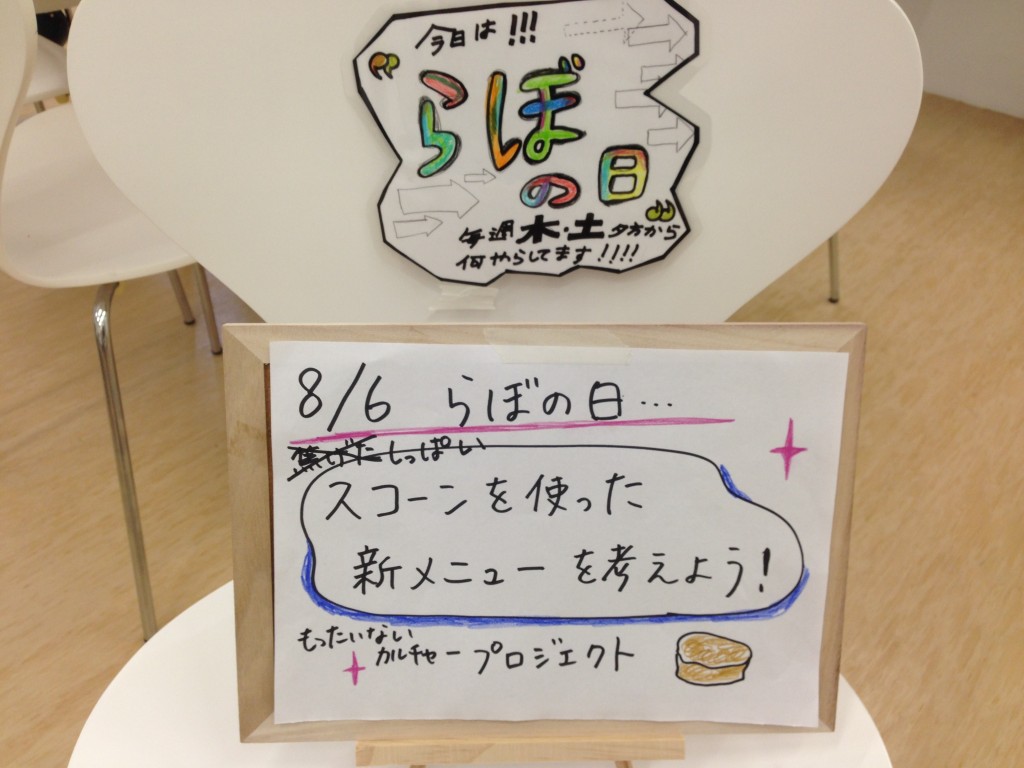 今日は!!!
“らぼの日”
毎週木・土夕方から
何やらしてます!!!!
8/6 らぼの日…
焦げたしっぱい
スコーンを使った
新メニューを考えよう!
もったいない
カルチャープロジェクト